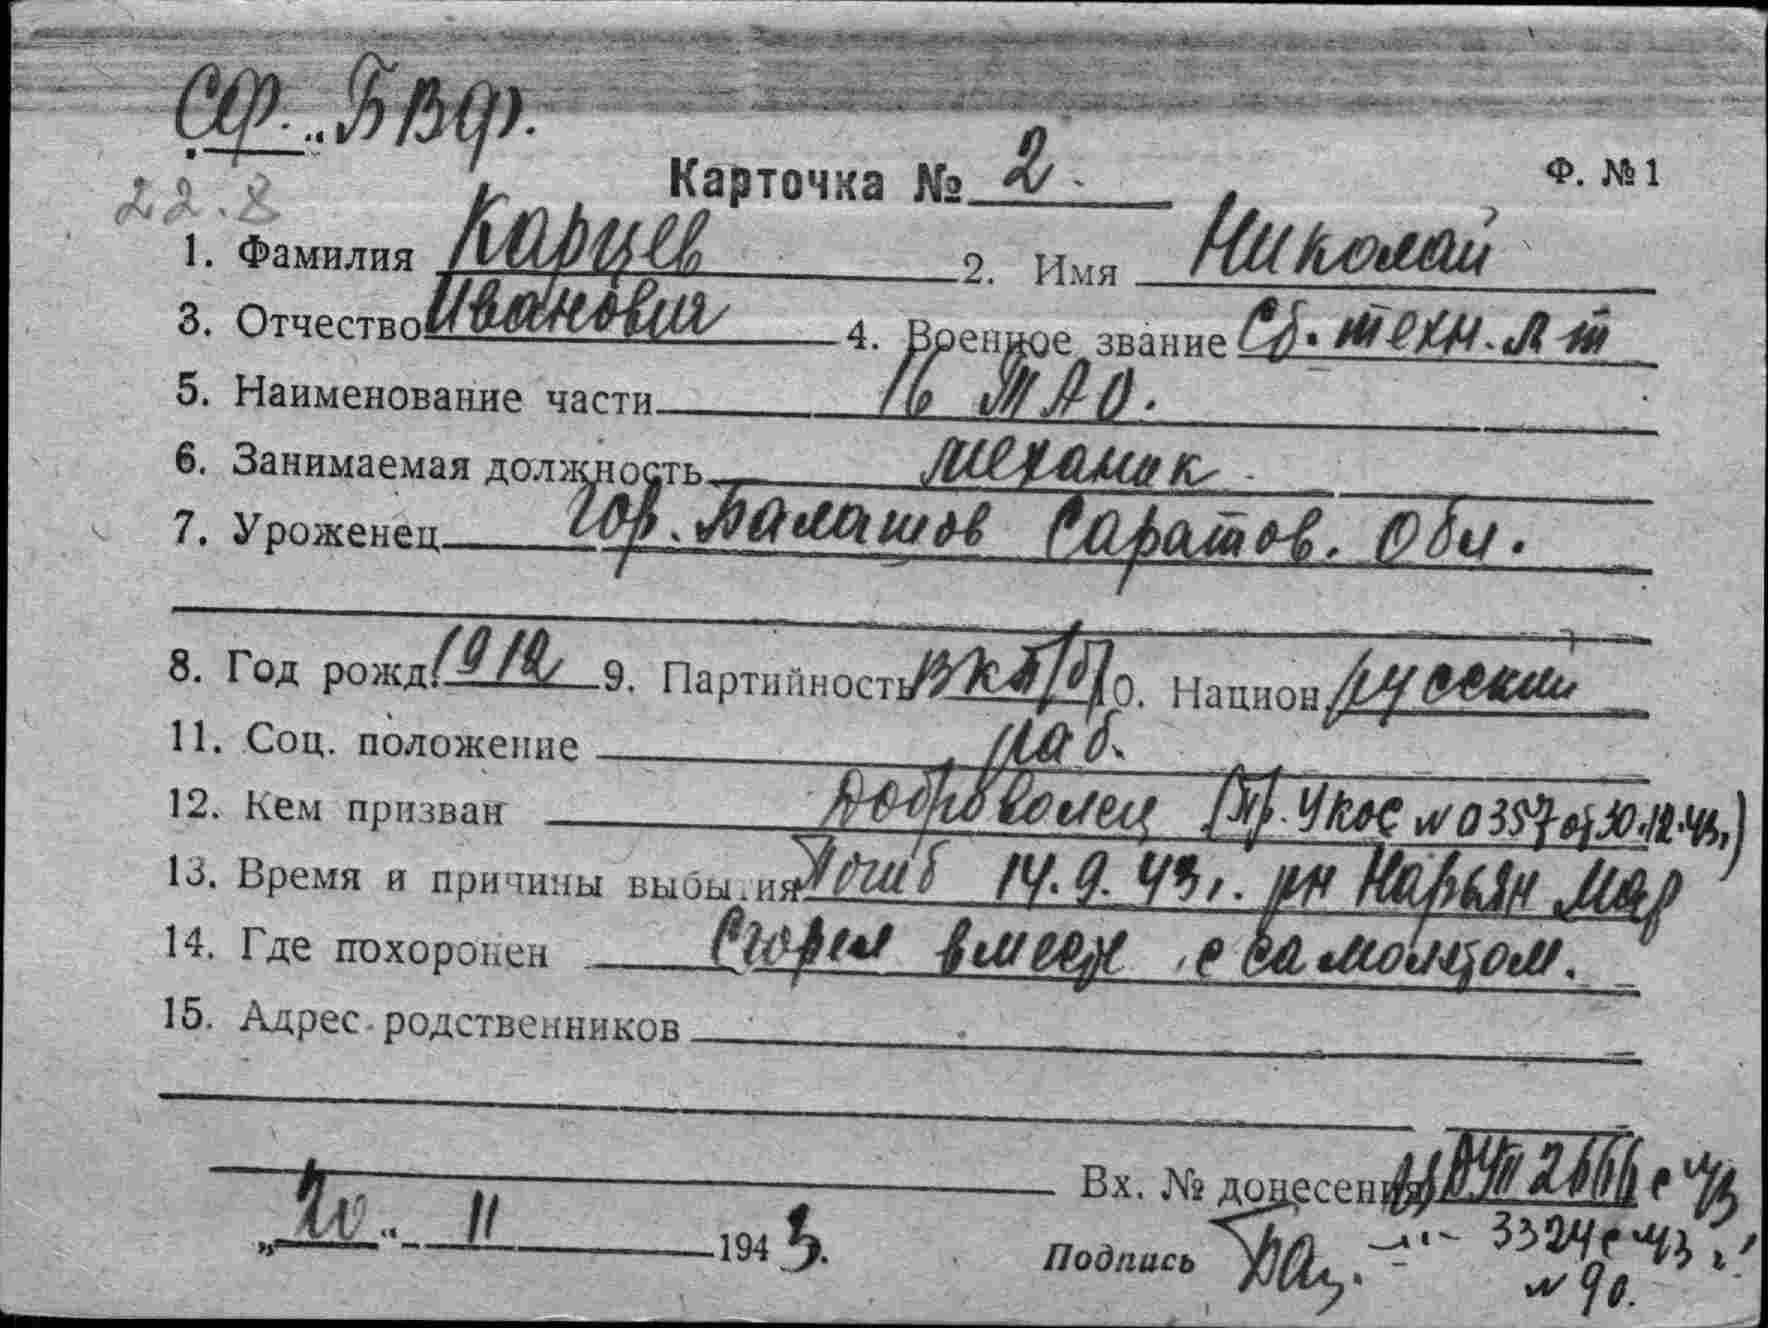 СФ. БВФ.
Карточка № 2. Ф. № 1
22.8
1. Фамилия Карцев 2. Имя Николай
3. Отчество Иванович 4. Военное звание Ст. техн. л-т
5. Наименование части 16 ТАО.
6. Занимаемая должность механик
7. Уроженец гор. Балашов Саратов. Обл.
8. Год рожд. 1912 9. Партийность ВКП(б) 10. Национ. русский
11. Соц. положение раб.
12. Кем призван Доброволец (пр. УКОС № 0357 от 30.12.43г.)
13. Время и причины выбытия Погиб 14.9.43г. рн Нарьян Мар
14. Где похоронен Сгорел вместе с самолетом.
15. Адрес родственников
Вх. № донесения с 43
„20“ 11 1943.
Подпись — 3324с 43 г.
№ 90.